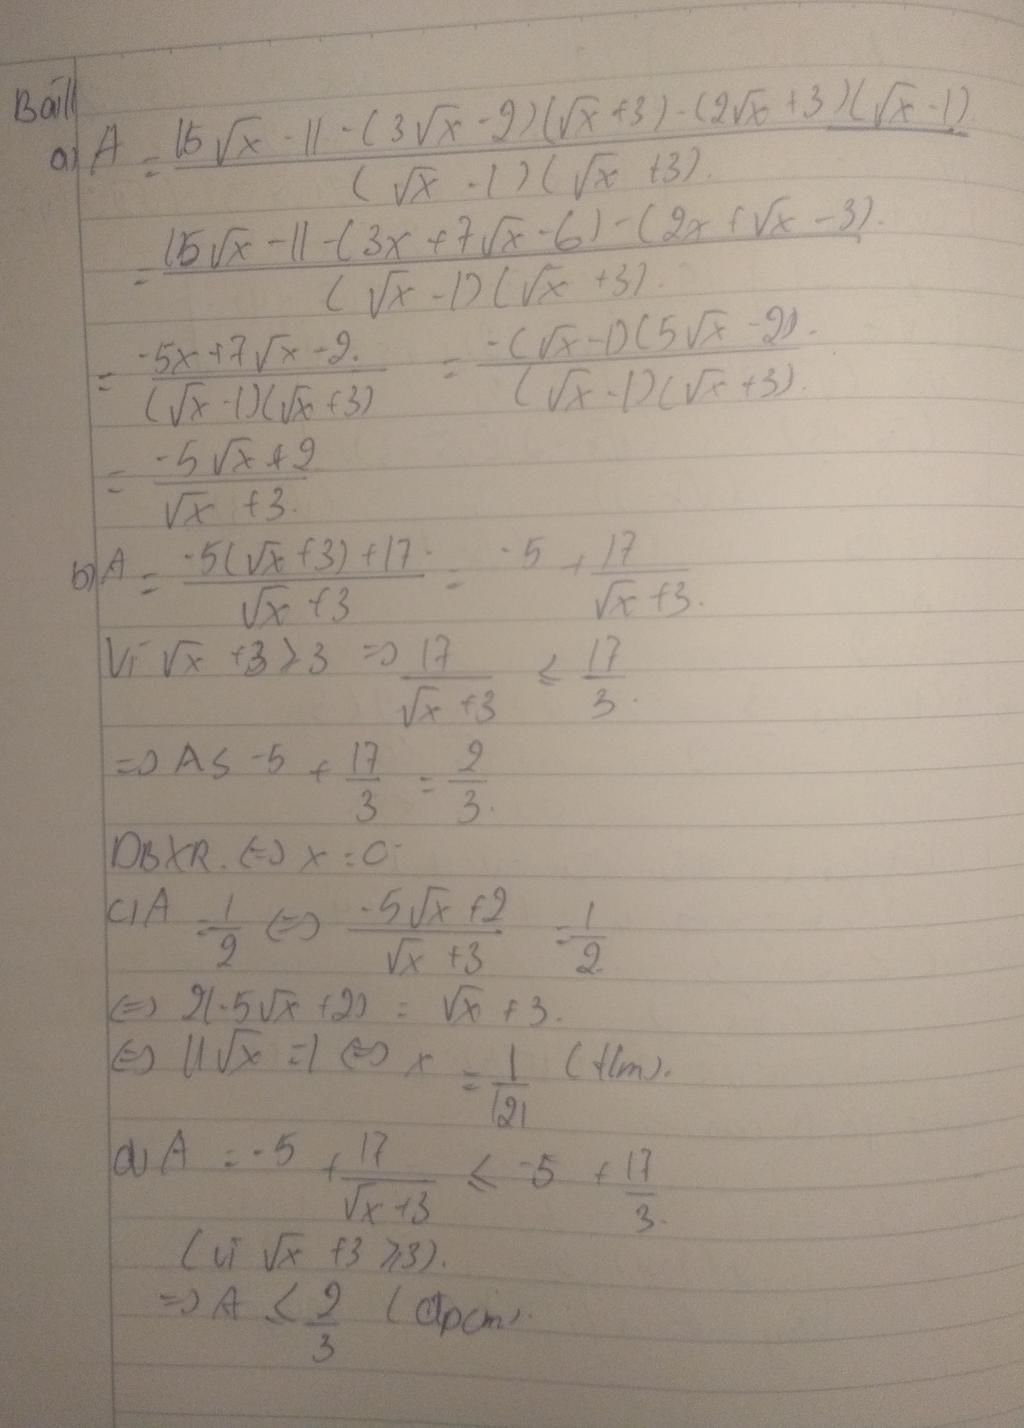 Bài 1
a) A = (15√x - 11 - (3√x - 2)(√x + 3) - (2√x + 3)(√x - 1)) / ((√x - 1)(√x + 3)).
= (15√x - 11 - (3x + 7√x - 6) - (2x + √x - 3)) / ((√x - 1)(√x + 3)).
= (-5x + 7√x - 2) / ((√x - 1)(√x + 3)) = (-(√x - 1)(5√x - 2)) / ((√x - 1)(√x + 3)).
= (-5√x + 2) / (√x + 3).
b) A = (-5(√x + 3) + 17) / (√x + 3) = -5 + 17/(√x + 3).
Vì √x + 3 ≥ 3 => 17/(√x + 3) ≤ 17/3.
=> A ≤ -5 + 17/3 = 2/3.
DBXR. <=> x = 0.
c) A = 1/2 <=> (-5√x + 2) / (√x + 3) = 1/2.
<=> 2(-5√x + 2) = √x + 3.
<=> 11√x = 1 <=> x = 1/121 (t/m).
d) A = -5 + 17/(√x + 3) ≤ -5 + 17/3.
(vì √x + 3 ≥ 3).
=> A ≤ 2/3 (đpcm).